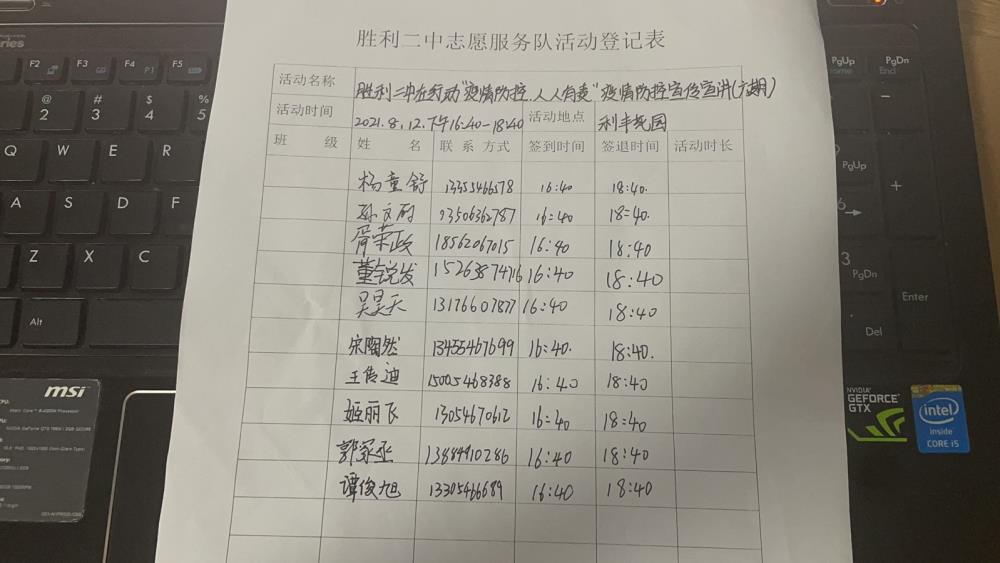 胜利二中志愿服务队活动登记表
活动名称 胜利二中在行动"疫情防控,人人有责"疫情防控宣传宣讲(六期)
活动时间 2021.8.12.下午16:40-18:40 活动地点 利丰花园
班 级 姓 名 联系方式 签到时间 签退时间 活动时长
杨童舒 13355466578 16:40 18:40.
孙文 13506362787 16:40 18:40.
胥荣政 18562067015 16:40 18:40
董锐发 15263874716 16:40 18:40
吴昊天 13176607877 16:40 18:40
宋陶然 13455467699 16:40. 18:40.
王传迪 15005468388 16:40 18:40
姬丽飞 13054670612 16:40 18:40
郭家丞 13884910286 16:40 18:40
谭俊旭 13305466689 16:40 18:40
F2 F3 F4 F5
P1
@ 2 # 3 $ 4 % 5
Q W E R T
A S D F
Z X C
Alt
PgUp PgUp
PgDn End
PgUp
+
6
3 PgDn
Enter
Del
msi
NVIDIA
GEFORCE
GTX
intel
inside
CORE i5